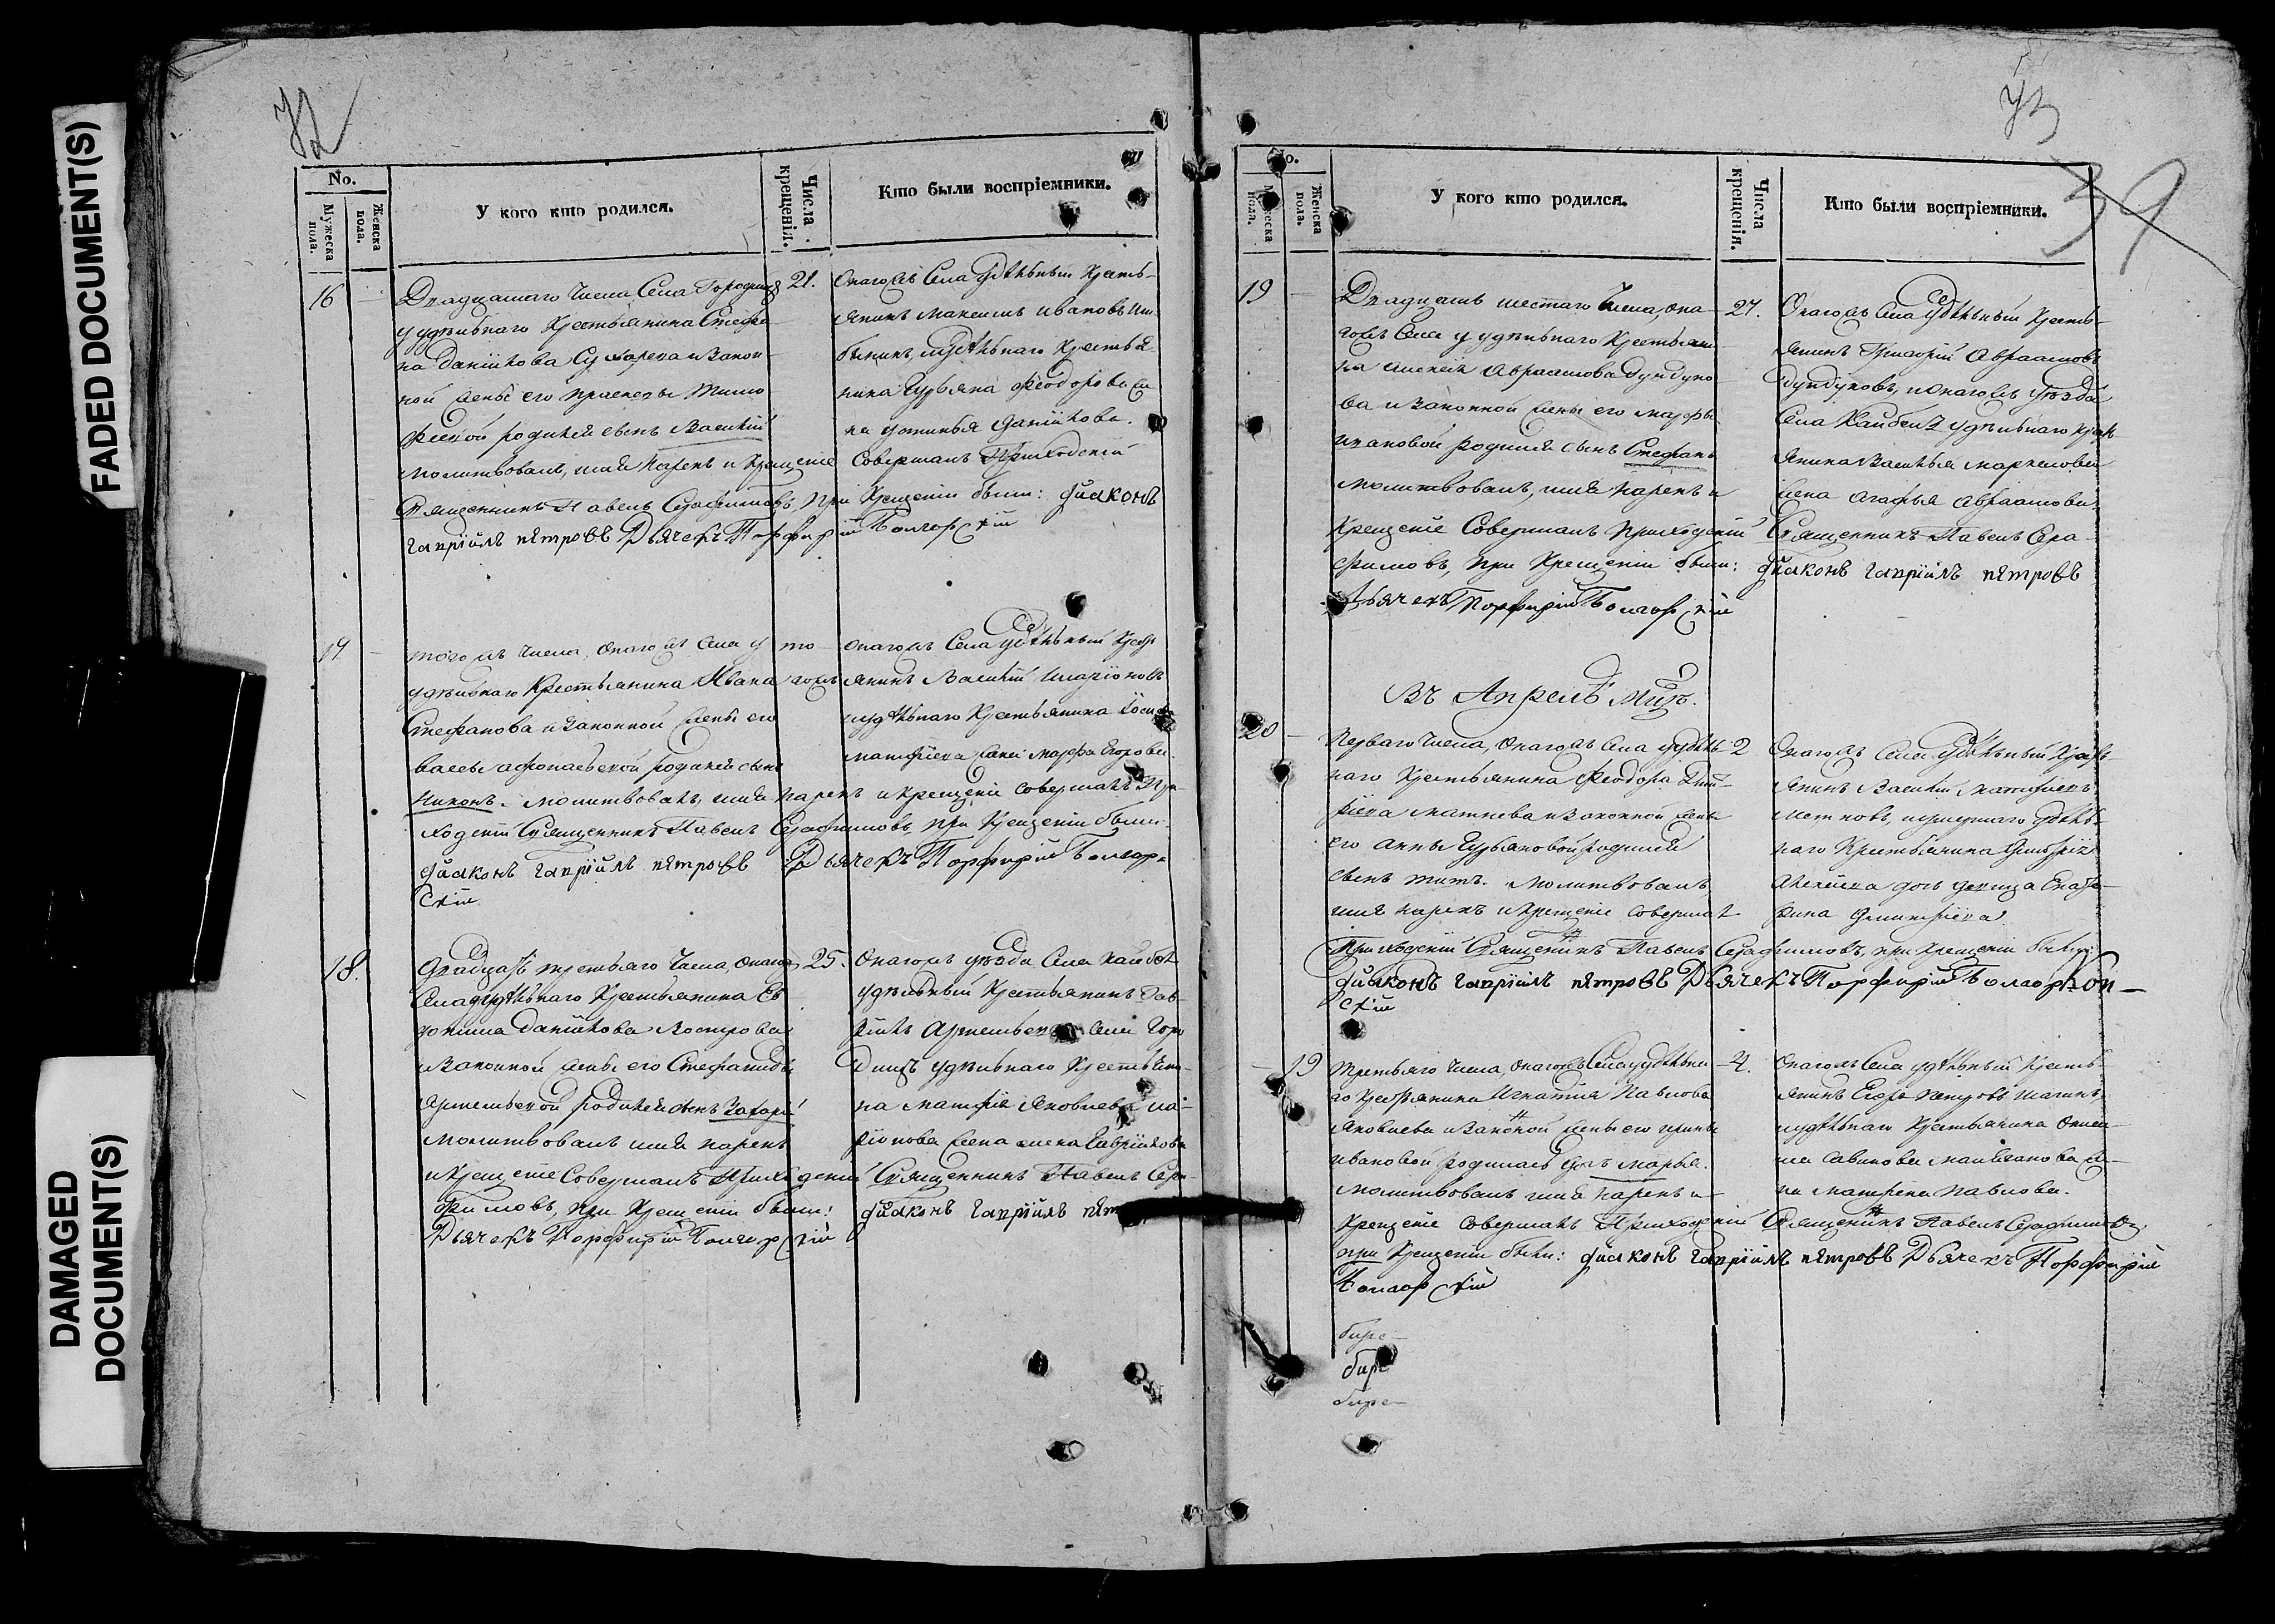 FADED DOCUMENT(S)
DAMAGED
DOCUMENT(S)
72
No.
Мужеска пола.
Женска пола.
У кого кто родился.
Числа крещенія.
Кто были воспріемники.
16
Двадцатаго Числа, Села Городищ
у удѣльнаго Крестьянина Стефа-
на Данилова и Закон-
ной жены его Тимо
феевой родился сынъ Василій
молитвовалъ, имя нарекъ и Крещеніе
Священникъ Павелъ Серафимовъ, При
Гавріилъ Петровъ Дьячекъ Порфирій Болгорскій
21.
Онагожъ Села Удѣльный Кресть-
янинъ Максимъ Ивановъ
удѣльнаго Крестья-
нина Гурьяна Феодорова
на Устинья Данилова.
Совершалъ Приходскій
Крещеніи были: Діаконъ
17
того жъ числа, Онагожъ Села у
удѣльнаго Крестьянина Ивана
Стефанова и Законной жены его
Вассы Афонасьевой родился сынъ
Никонъ. молитвовалъ, имя нарекъ и крещеніе совершалъ При
ходскій Священникъ Павелъ Серафимовъ, при Крещеніи были:
Діаконъ Гавріилъ Петровъ Дьячекъ Порфирій Болгор-
скій
то
гожъ
Онагожъ Села Удѣльный Кресть
янинъ Василій Иларіоновъ
и удѣльнаго Крестьянина
Матфіева жена Марфа Егорова.
18.
Двадцать третьяго Числа, Онагож
Села удѣльнаго Крестьянина Ев
докима Данилова Вострова
и Законной жены его Стефаниды
Артемьевой родился сынъ Захарій
молитвовалъ имя нарекъ
и Крещеніе Совершалъ Приходскій Священникъ Павелъ Сера-
фимовъ, при Крещеніи были: Діаконъ Гавріилъ
Дьячекъ Порфирій Болгорскій
25.
Онагожъ уѣзда Села Каибел
удѣльный Крестьянинъ Гав-
ріилъ Артемьевъ Села Горо
дищъ удѣльнаго Крестьяни-
на Матфія Яковлева Ла-
ріонова жена Гаврилова
73
39
No.
Мужеска пола.
Женска пола.
У кого кто родился.
Числа крещенія.
Кто были воспріемники.
19
Двадцать шестаго Числа, она-
гожъ Села у удѣльнаго Крестьяни-
на Алексѣя Авраамова Дундуко-
ва и Законной жены его Марфы
Ивановой родился сынъ Стефанъ
молитвовалъ, имя нарекъ и
Крещеніе Совершалъ Приходскій Священникъ Павелъ Сера-
фимовъ, при Крещеніи были: Діаконъ Гавріилъ Петровъ
Дьячекъ Порфирій Болгорскій
27.
Онагожъ Села Удѣльный Кресть-
янинъ Григорій Авраамовъ
Дундуковъ, и онагожъ уѣзда
Села Каибелъ удѣльнаго Крест
янина Василья Маркелова
жена Агафья Авраамова.
Въ Апрелѣ Мцѣ.
20
Перваго Числа, Онагожъ Села у удѣль-
наго Крестьянина Феодора Дмит-
ріева Матнева и Законной жены
его Анны Гурьяновой родился
сынъ Титъ. молитвовалъ,
имя нарекъ и Крещеніе Совершал
Приходскій Священникъ Павелъ Серафимовъ, при Крещеніи были:
Діаконъ Гавріилъ Петровъ Дьячекъ Порфирій Болгор
скій
2
Онагожъ Села Удѣльный Кресть-
янинъ Василій Матфіевъ
удѣль-
наго Крестьянина Дмитрія
Алексѣева дочь девица Екате-
рина Дмитріева
19
Третьяго Числа, Онагожъ Села у удѣльна
го Крестьянина Игнатія Павлова
Яковлева и Законной жены его Ирины
Ивановой родилась дочь Марья.
молитвовалъ имя нарекъ и
Крещеніе Совершалъ Приходскій Священникъ Павелъ Серафимовъ
при Крещеніи были: Діаконъ Гавріилъ Петровъ Дьячекъ Порфирій
Болгорскій
4.
Онагожъ Села удѣльный Кресть-
янинъ Егоръ Петровъ
и удѣльнаго Крестьянина
Савинова
на Матрена Павлова.